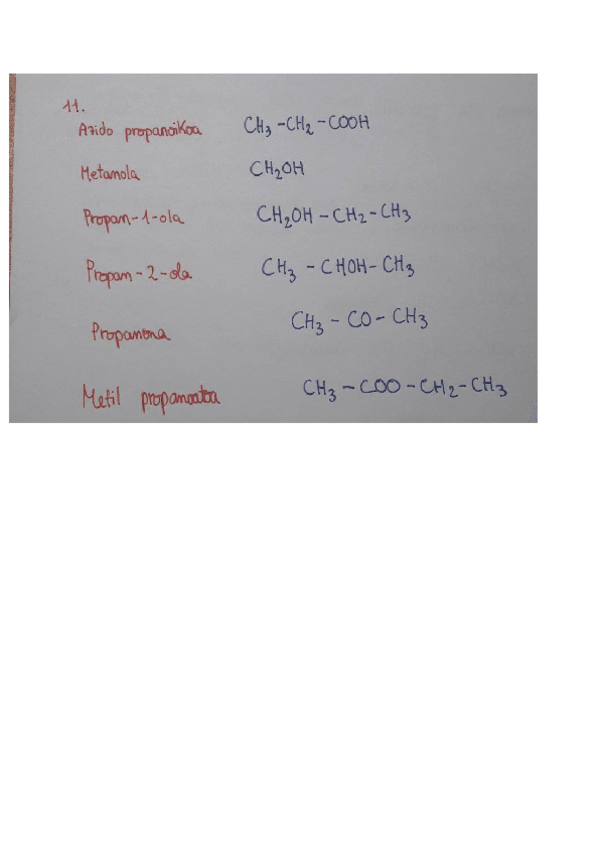 11.
Azido propanoikoa CH₃-CH₂-COOH
Metanola CH₂OH
Propan-1-ola CH₂OH-CH₂-CH₃
Propan-2-ola CH₃-CHOH-CH₃
Propanona CH₃-CO-CH₃
Metil propanoatoa CH₃-COO-CH₂-CH₃